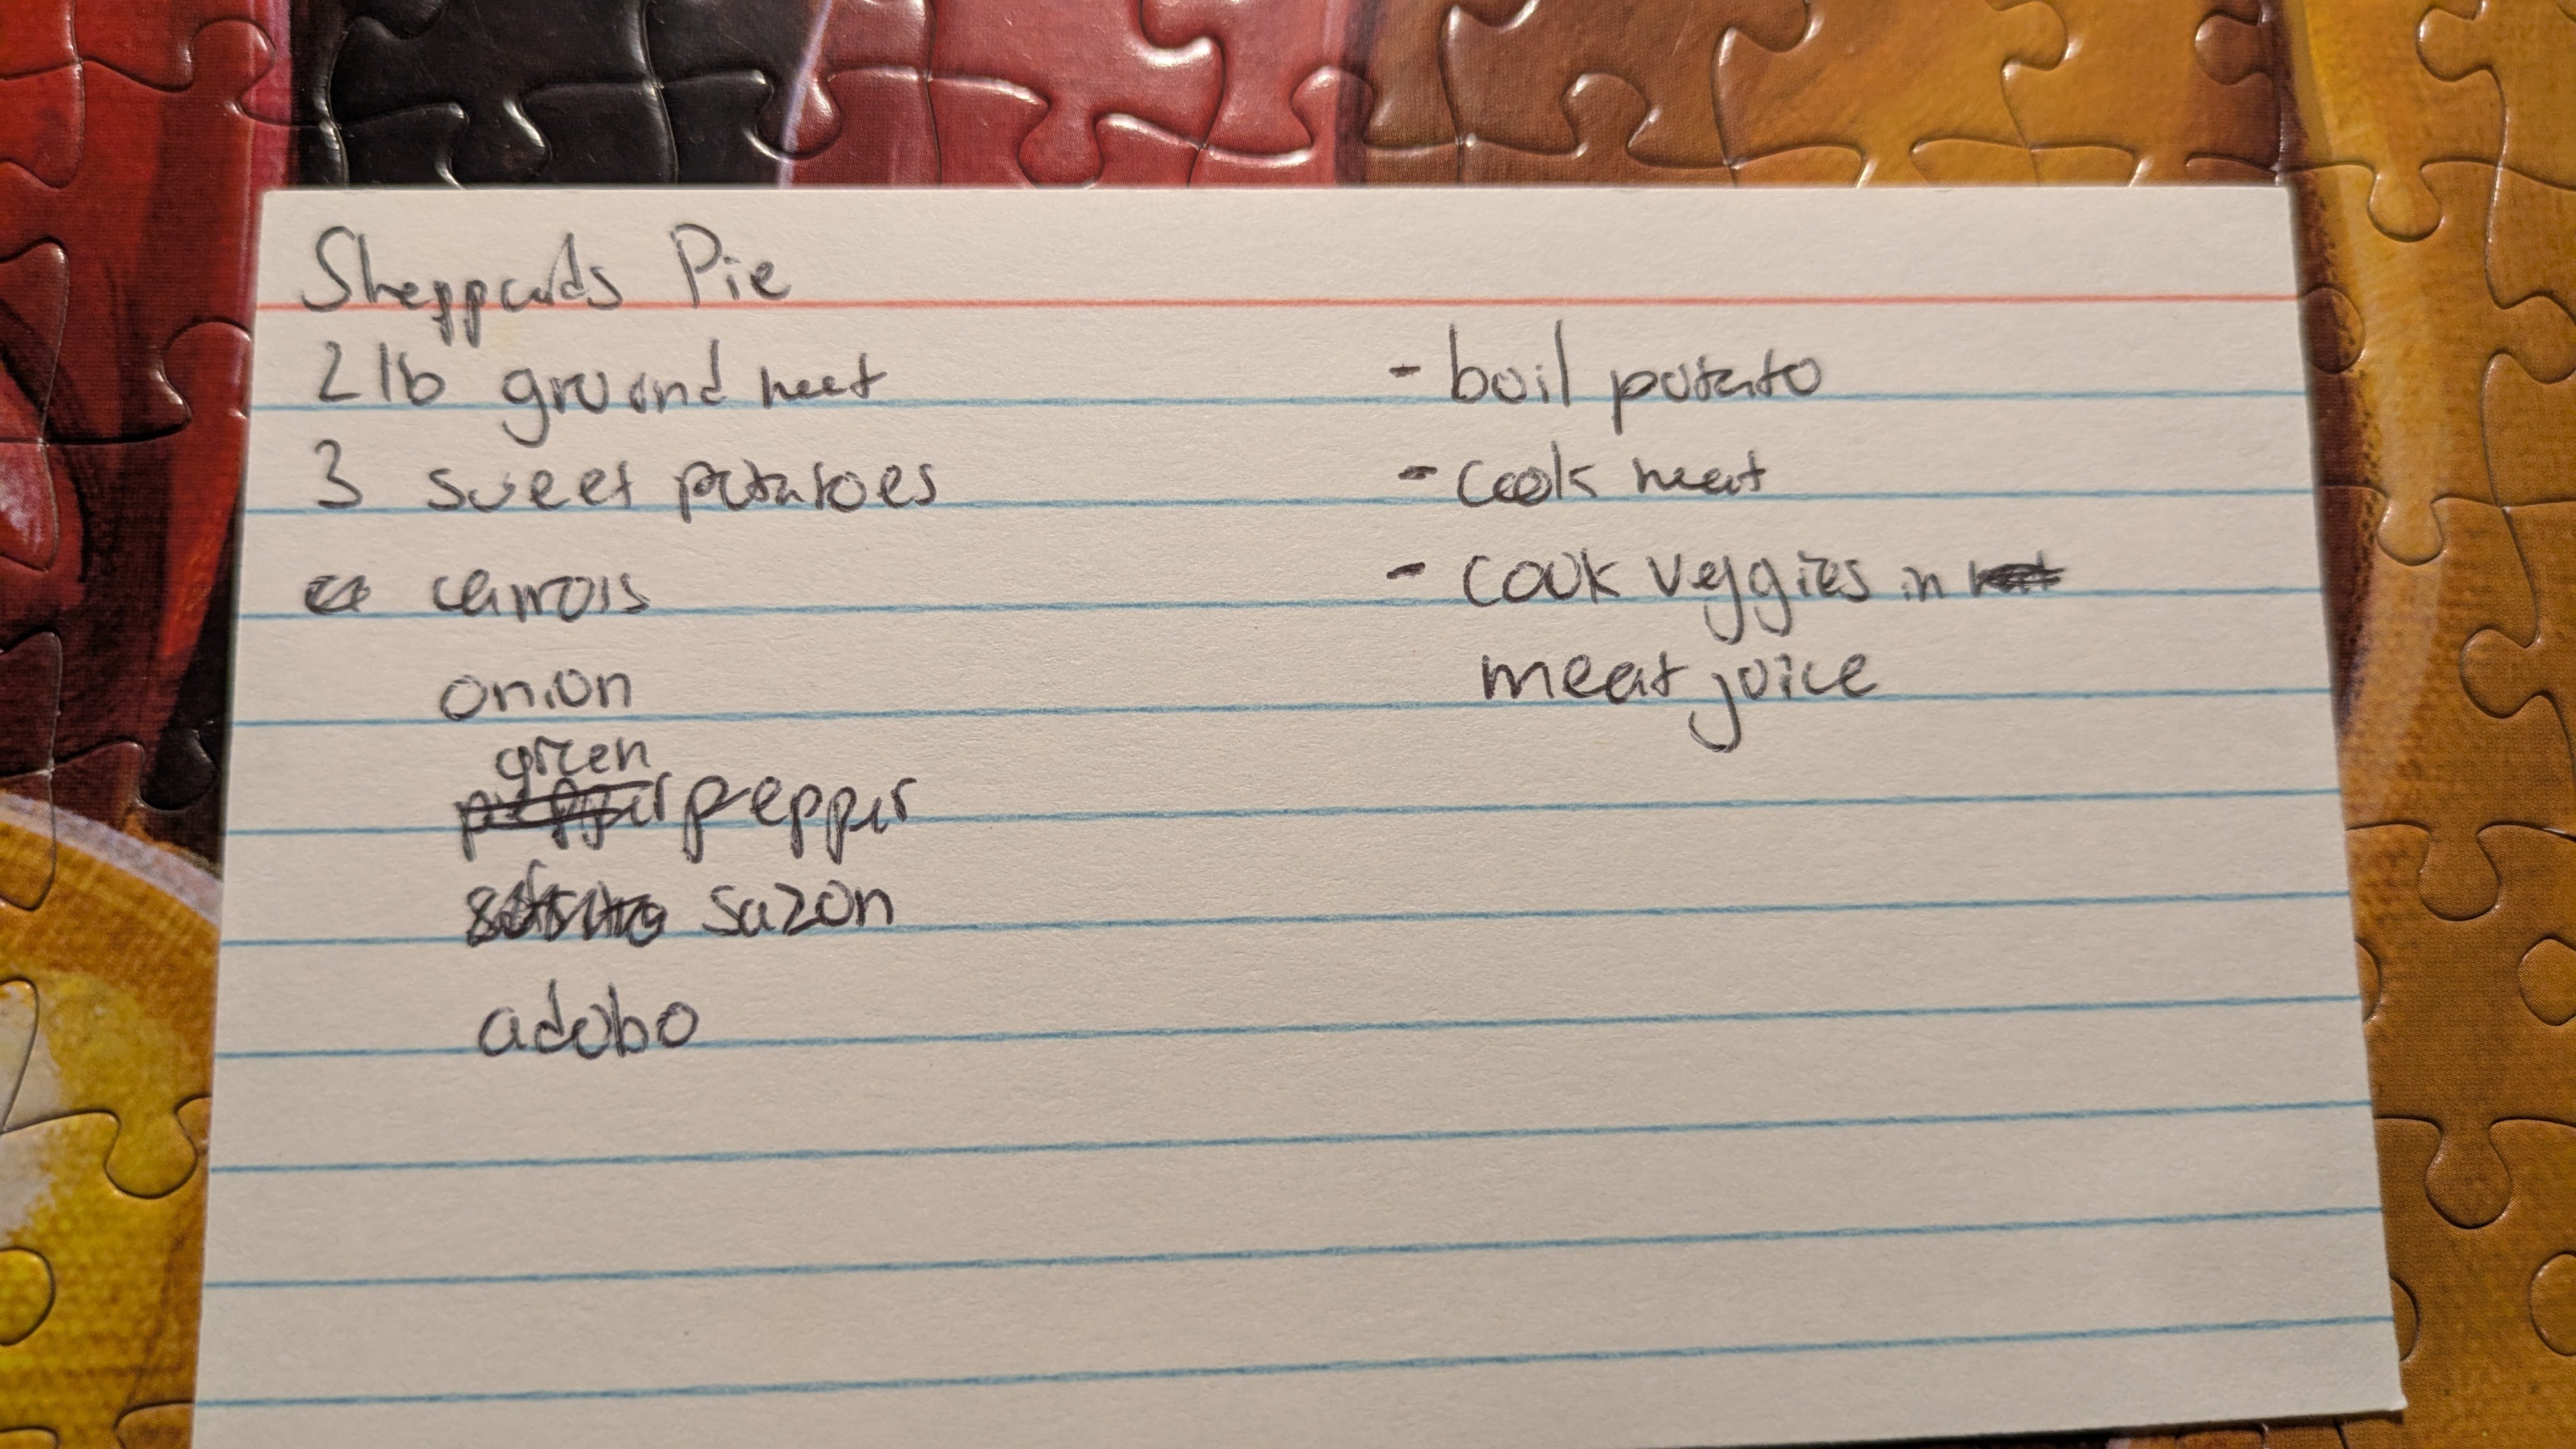 Sheppards Pie
2 lb ground meat
3 sweet potatoes
carrots
onion
green
pepper pepper
sazon
adobo
- boil potato
- cook meat
- cook veggies in
meat juice